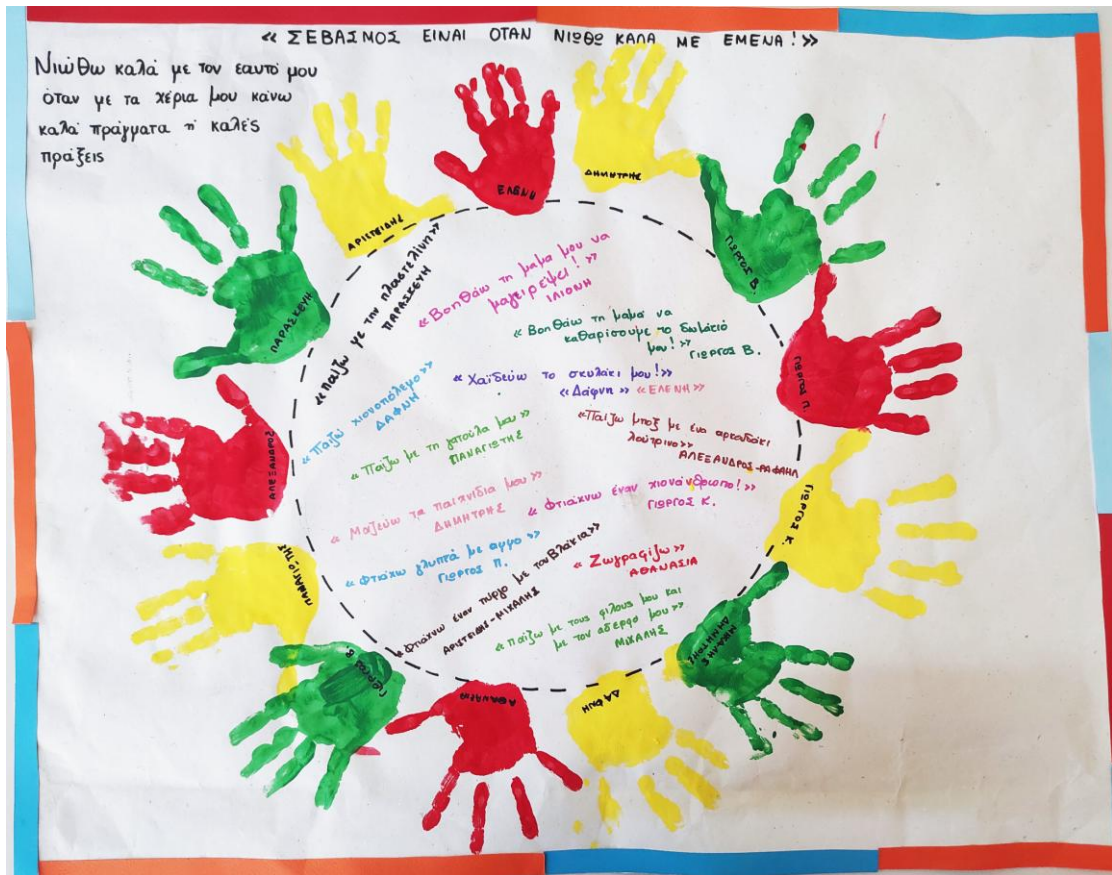 « ΣΕΒΑΣΜΟΣ ΕΙΝΑΙ ΟΤΑΝ ΝΙΩΘΩ ΚΑΛΑ ΜΕ ΕΜΕΝΑ! »
Νιώθω καλά με τον εαυτό μου
όταν με τα χέρια μου κάνω
καλά πράγματα ή καλές
πράξεις
ΑΡΙΣΤΕΙΔΗΣ
ΕΛΕΝΗ
ΔΗΜΗΤΡΗΣ
ΓΙΩΡΓΟΣ Β.
ΓΙΩΡΓΟΣ Π.
ΓΙΩΡΓΟΣ Κ.
ΜΙΧΑΛΗΣ
ΔΑΦΝΗ
ΑΘΑΝΑΣΙΑ
ΓΙΩΡΓΟΣ
ΠΑΝΑΓΙΩΤΗΣ
ΑΛΕΞΑΝΔΡΟΣ
ΠΑΡΑΣΚΕΥΗ
«Παίζω με την πλαστελίνη»
ΠΑΡΑΣΚΕΥΗ
«Βοηθάω τη μαμα μου να
μαγειρέψει! »
ΙΛΙΟΝΗ
« Βοηθάω τη μαμα να
καθαρίσουμε το δωμάτιό
μου! »
ΓΙΩΡΓΟΣ Β.
« Παίζω χιονοπόλεμο »
ΔΑΦΝΗ
« Χαϊδεύω το σκυλάκι μου! »
«Δάφνη » « ΕΛΕΝΗ »
«Παίζω με τη γατούλα μου »
ΠΑΝΑΓΙΩΤΗΣ
«Παίζω μποξ με ένα αρκουδάκι
λούτρινο»
ΑΛΕΞΑΝΔΡΟΣ-ΡΑΦΑΗΛ
« Μαζεύω τα παιχνίδια μου »
ΔΗΜΗΤΡΗΣ
« Φτιάχνω έναν χιονάνθρωπο! »
ΓΙΩΡΓΟΣ Κ.
« Φτιάχνω γλυπτά με αμμο »
ΓΙΩΡΓΟΣ Π.
« Ζωγραφίζω »
ΑΘΑΝΑΣΙΑ
«Φτιάχνω έναν πύργο με τουβλάκια»
ΑΡΙΣΤΕΙΔΗΣ-ΜΙΧΑΛΗΣ
« Παίζω με τους φίλους μου και
με τον αδερφό μου »
ΜΙΧΑΛΗΣ